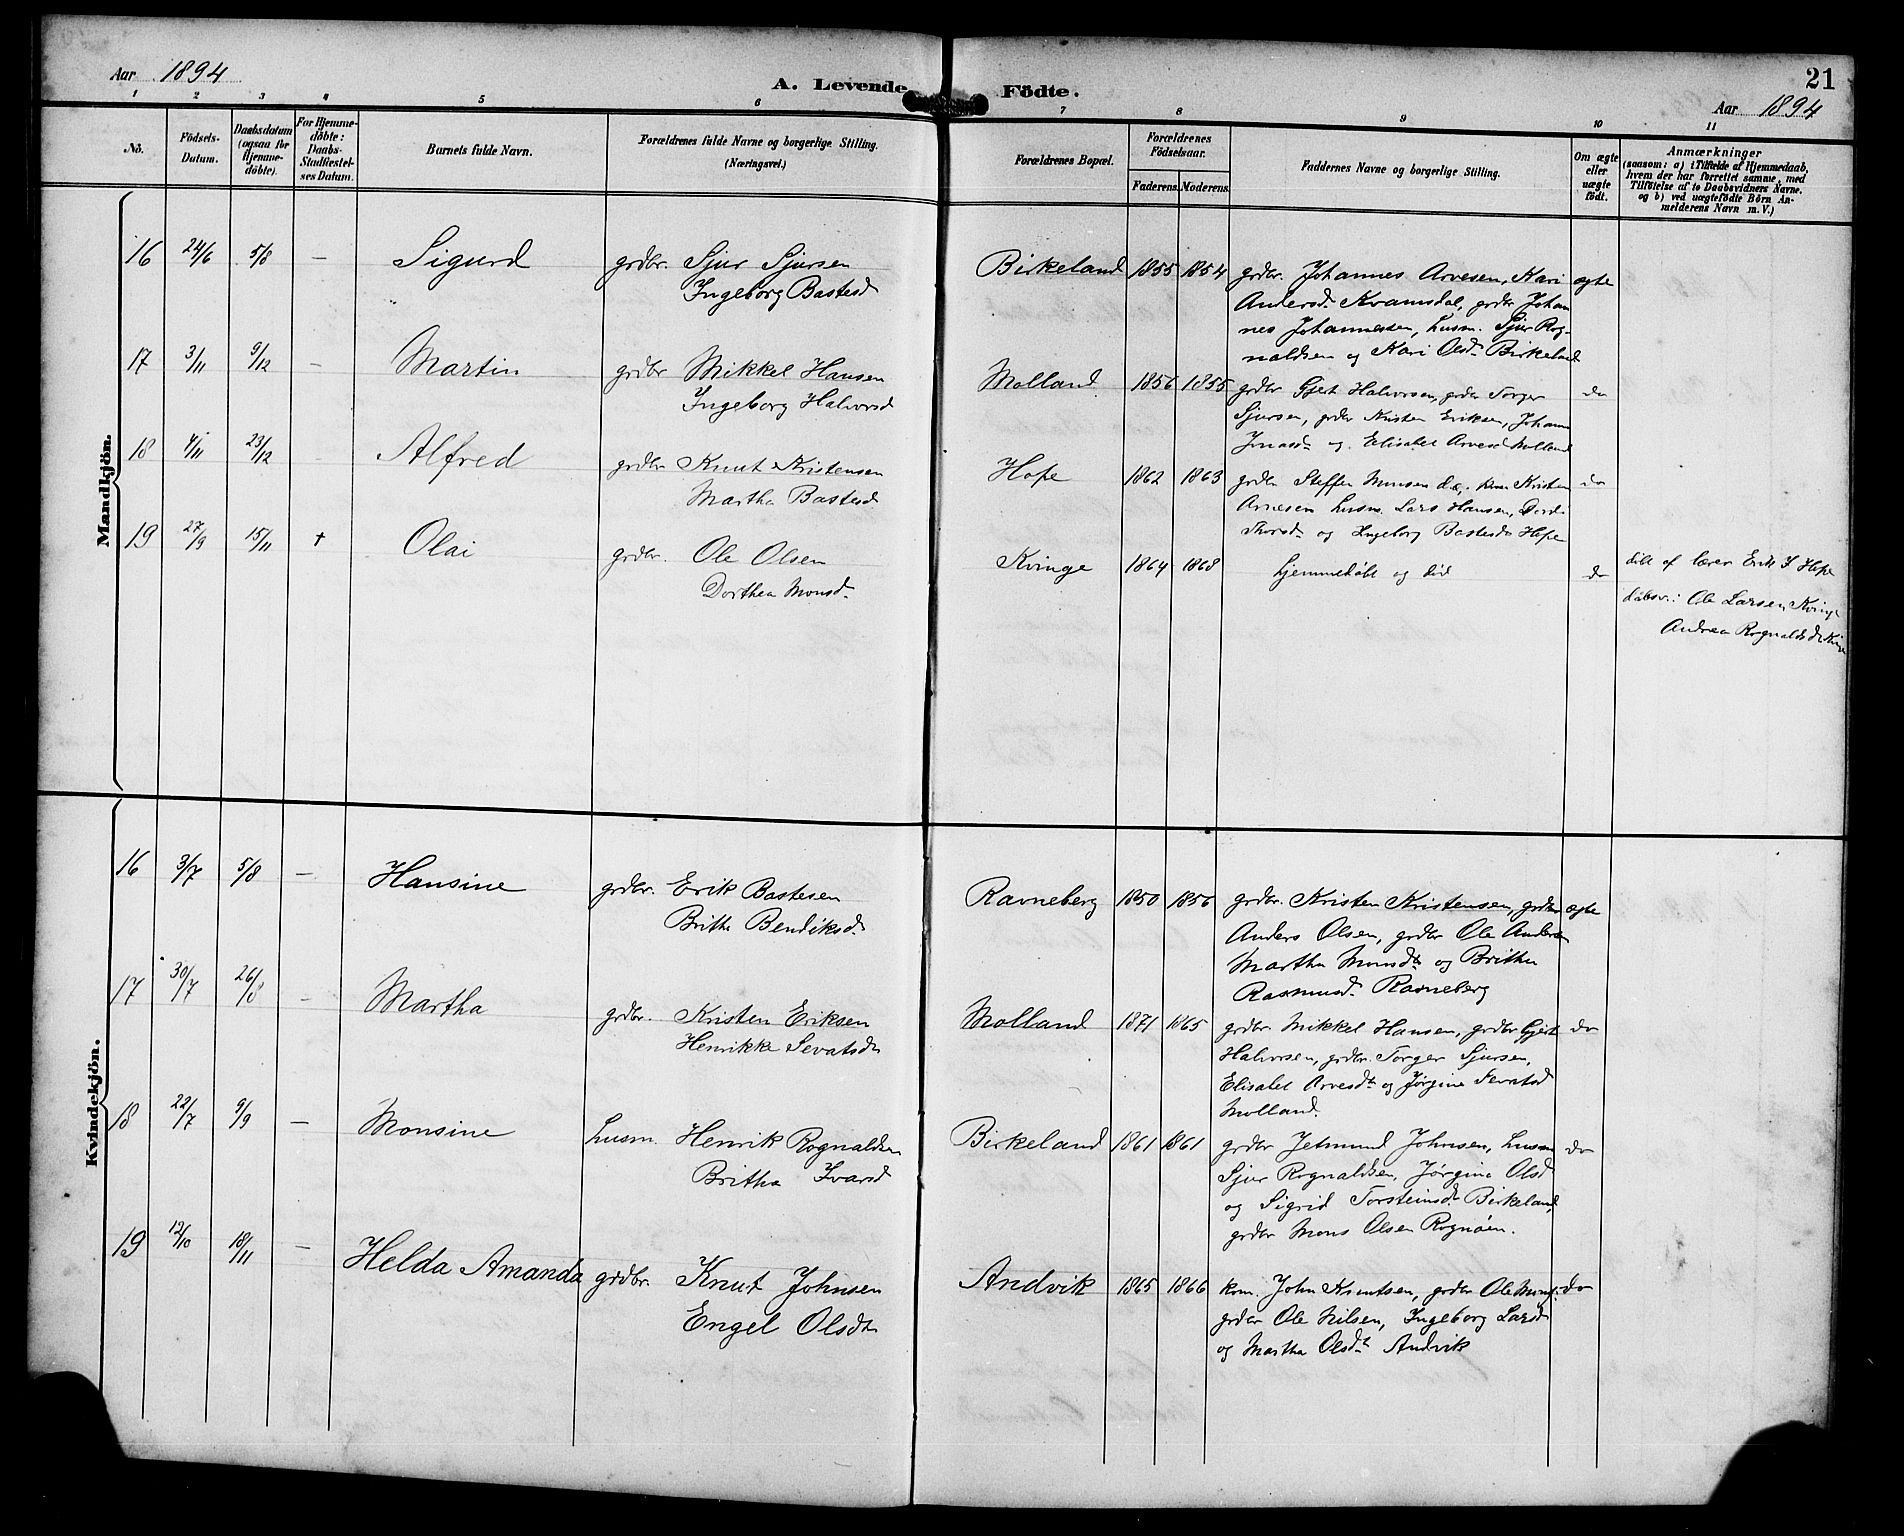 Aar 1894
A. Levende Födte.
21
Aar 1894
1 2 3 4 5 6 7 8 9 10 11
No.
Födsels-
Datum.
Daabsdatum
(ogsaa for
Hjemme-
döbte).
For Hjemme-
döbte:
Daabs-
Stadfæstel-
ses Datum.
Barnets fulde Navn.
Forældrenes fulde Navne og borgerlige Stilling.
(Næringsvei.)
Forældrenes Bopæl.
Forældrenes
Födselsaar.
Faderens. Moderens.
Faddernes Navne og borgerlige Stilling.
Om ægte
eller
uægte
födt.
Anmærkninger
(saasom: a) i Tilfælde af Hjemmedaab,
hvem der har forrettet samme, med
Tilföielse af to Daabsvidners Navne.
og b) ved uægtefödte Börn An-
melderens Navn m. V.)
Mandkjön.
16 24/6 5/8 — Sigurd grdbr. Sjur Sjursen
Ingeborg Bastesd
Birkeland 1855 1854 grdbr. Johannes Arvesen, Kari ægte
Andersdr Kvamsdal, grdbr Johan
nes Johannesen, husm. Sjur Rog-
naldsen og Kari Olsdr Birkeland
17 3/11 9/12 — Martin grdbr Mikkel Hansen
Ingeborg Halvorsd
Molland 1856 1855 grdbr Gjert Halvorsen, grdbr Torger do
Sjursen, grdbr Kristen Eriksen, Johann
Jonasdr og Elisabet Arvesd Molland
18 4/11 23/12 Alfred grdbr Knut Kristensen
Martha Bastesd
Hope 1862 1863 grdbr Steffen Monsen do, Kristen do
Arnesen husm. Lars Hansen, Dordi
og Ingeborg Bastesdr Hope
19 27/9 15/11 + Olai grdbr. Ole Olsen
Dorthea Monsd.
Kvinge 1864 1868 hjemmedøbt og død do
døbt af lærer Erik J Hope
dåbsv.: Ole Larsen Kvinge
Andrea Rognaldsdr Kvinge
Kvindekjön.
16 3/7 5/8 — Hansine grdbr. Erik Bastesen
Brithe Bendiksd.
Ravneberg 1850 1856 grdbr. Kristen Kristensen, grdbr ægte
Anders Olsen, grdbr Ole Andersen
Martha Monsdr og Britha
Rasmusd. Ravneberg
17 30/7 26/8 — Martha grdbr. Kristen Eriksen
Henrikke Sevatsdr
Molland 1871 1865 grdbr Mikkel Hansen, grdbr Gjert do
Halvorsen, grdbr. Torger Sjursen,
Elisabet Arvesdr og Jørgine Sevatsd
Molland.
18 22/7 9/9 — Monsine husm. Henrik Rognaldsen
Britha Ivarsd
Birkeland 1861 1861 grdbr Jetmund Johnsen, husm do
Sjur Rognaldsen, Jørgine Olsd
og Sigrid Torsteinsdr Birkeland,
grdbr Mons Olsen Rognøen.
19 12/10 18/11 — Helda Amanda grdbr. Knut Johnsen
Engel Olsdr
Andvik 1865 1866 kom. John Knutsen, grdbr Ole Mons: do
grdbr Ole Nilsen, Ingeborg Larsd
og Martha Olsdr Andvik